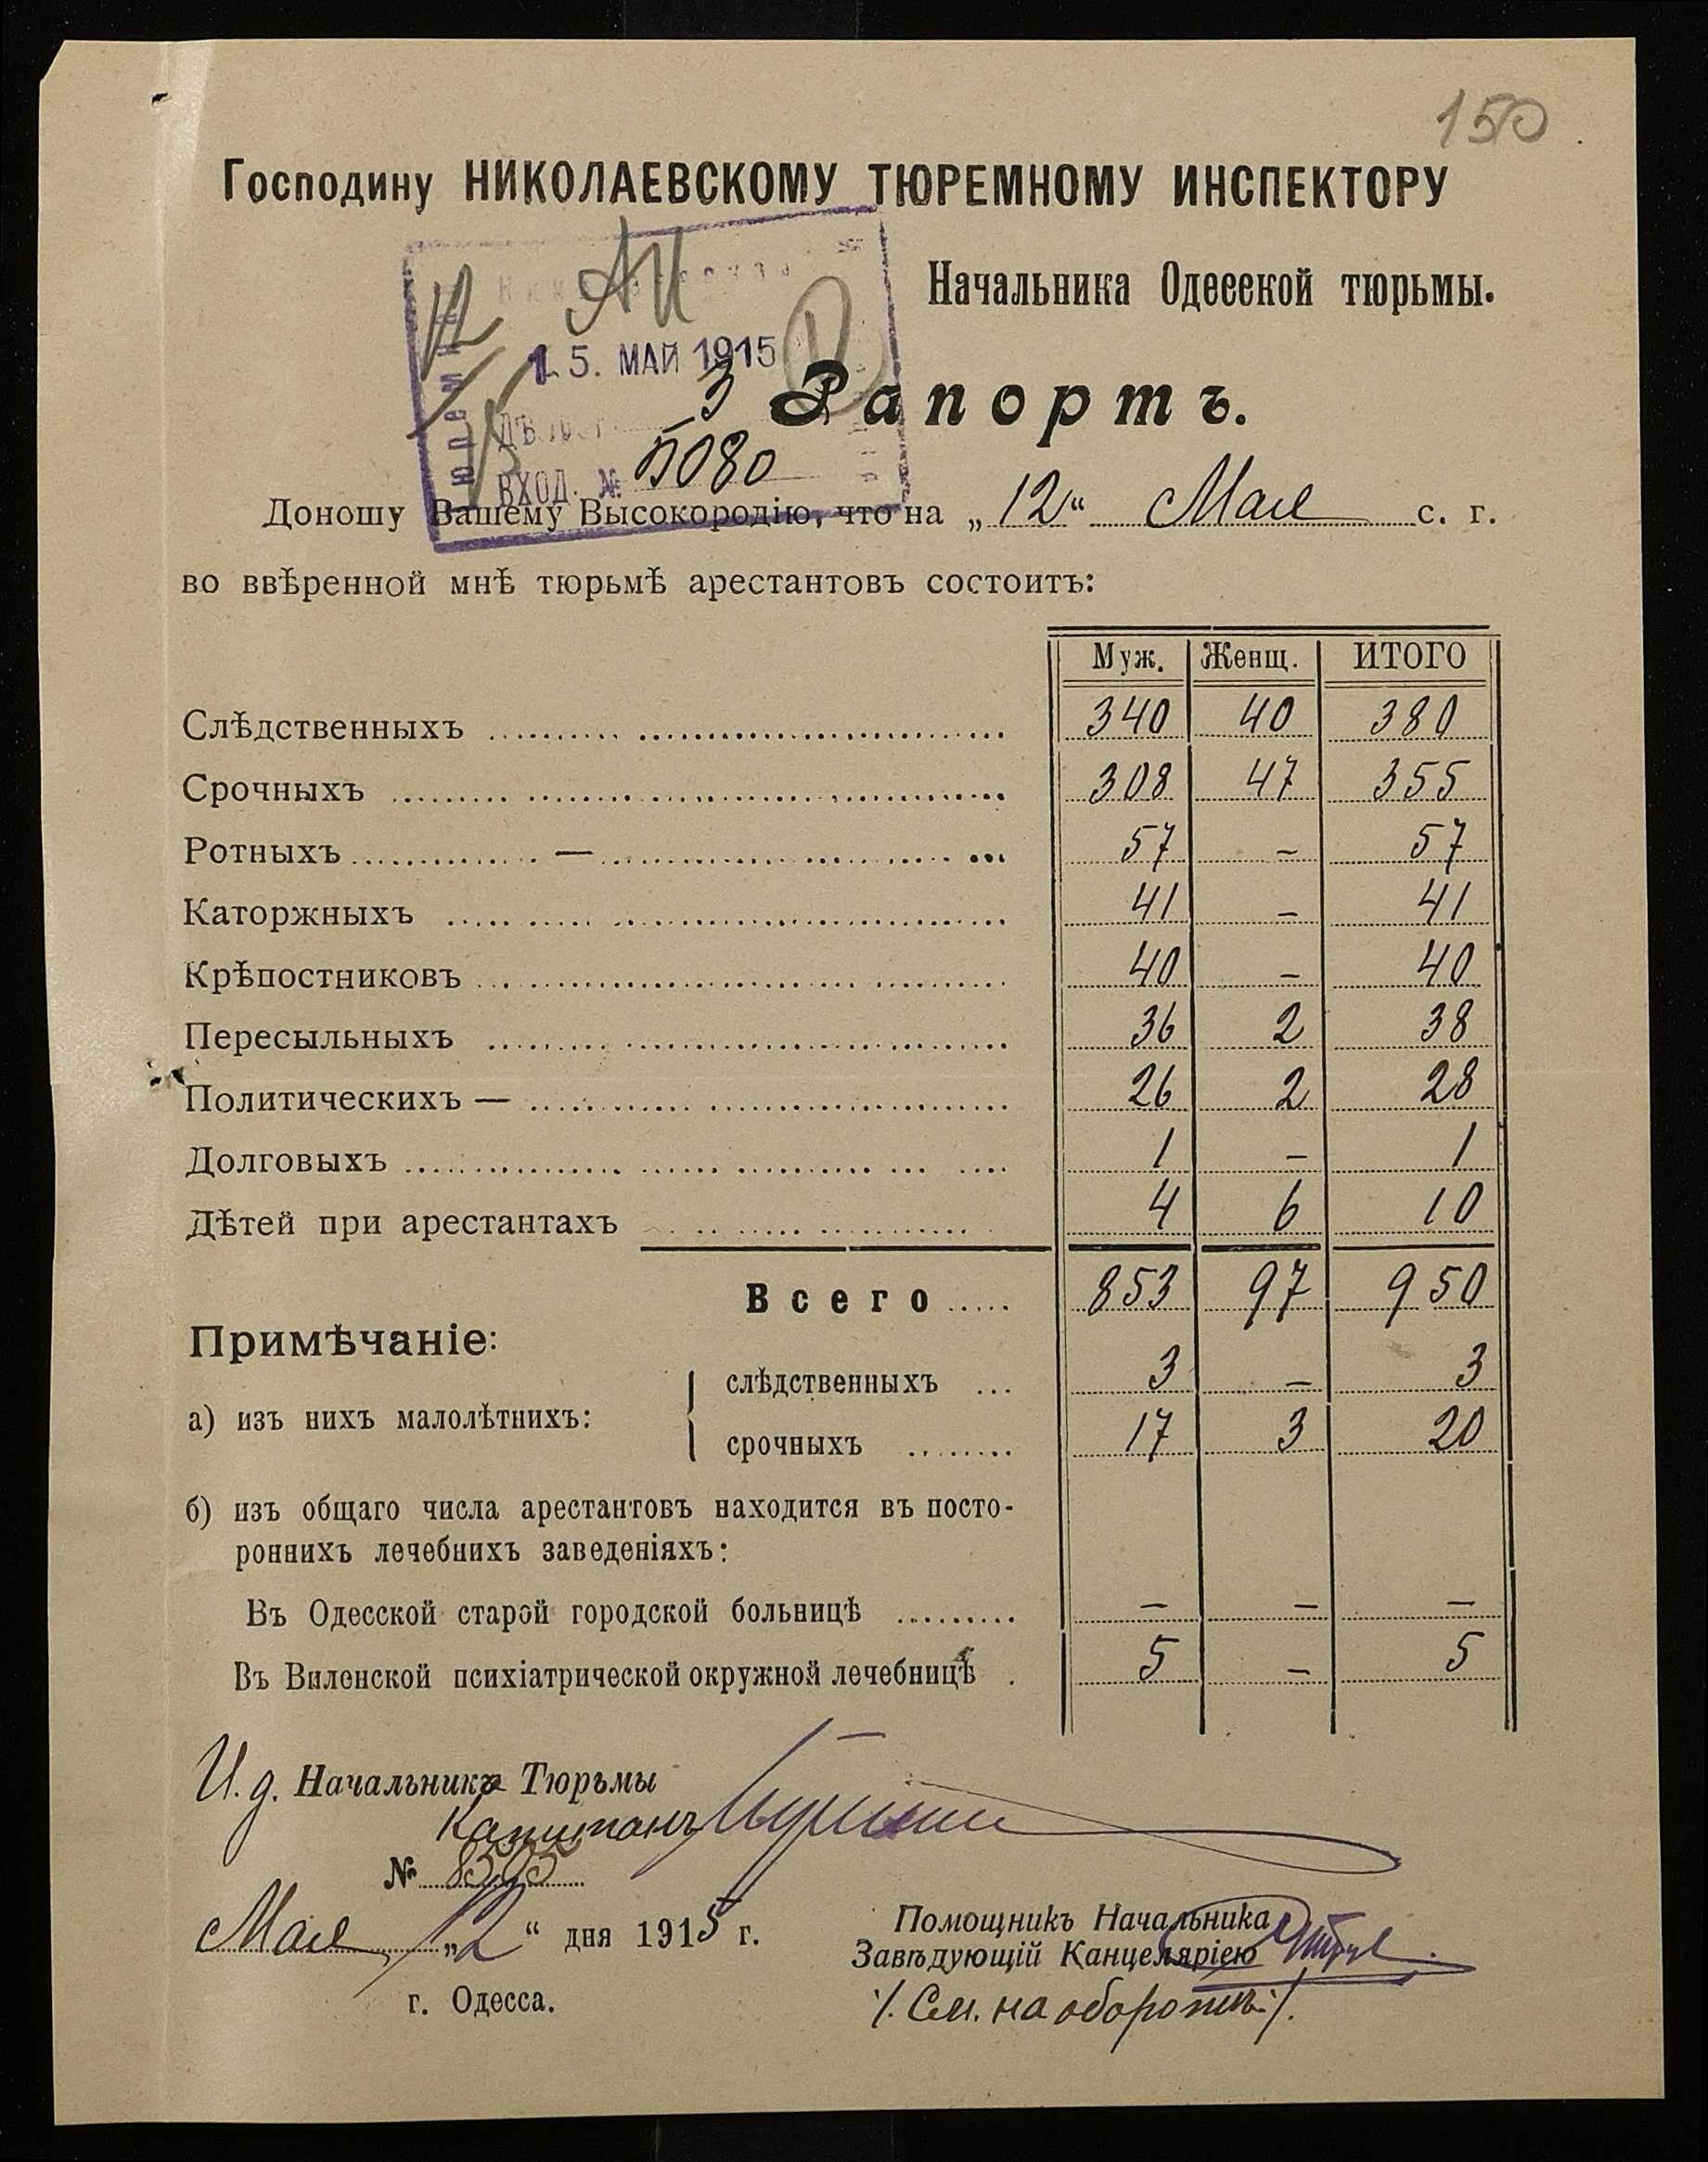 150
Господину НИКОЛАЕВСКОМУ ТЮРЕМНОМУ ИНСПЕКТОРУ
Начальника Одесской тюрьмы.
15. МАЙ 1915
3
Рапортъ.
ВХОД. № 5080
Доношу Вашему Высокородію, что на „12“ Мая с. г.
во ввѣренной мнѣ тюрьмѣ арестантовъ состоитъ:
Муж. Женщ. ИТОГО
Слѣдственныхъ 340 40 380
Срочныхъ 308 47 355
Ротныхъ — 57 - 57
Каторжныхъ 41 - 41
Крѣпостниковъ 40 - 40
Пересыльныхъ 36 2 38
Политическихъ — 26 2 28
Долговыхъ 1 - 1
Дѣтей при арестантахъ 4 6 10
Всего 853 97 950
Примѣчаніе:
а) изъ нихъ малолѣтнихъ:
слѣдственныхъ 3 - 3
срочныхъ 17 3 20
б) изъ общаго числа арестантовъ находится въ посто-
роннихъ лечебнихъ заведеніяхъ:
Въ Одесской старой городской больницѣ - - -
Въ Виленской психіатрической окружной лечебницѣ 5 - 5
И. д. Начальника Тюрьмы
Капитанъ
№ 8595
Мая „12“ дня 1915 г.
г. Одесса.
Помощникъ Начальника
Завѣдующій Канцеляріею
/. См. на оборотѣ /.